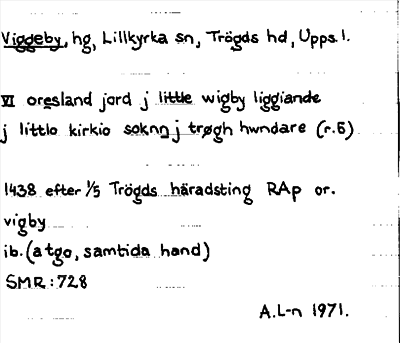 Viggeby, hg, Lillkyrka sn, Trögds hd, Upps. l.
VI oresland jord j little wigby liggiande
j littlo kirkio soknn j trøgh hwndare (r. 5)
1438 efter 1/5 Trögds häradsting RAp or.
vigby
ib. (a tgo, samtida hand)
SMR: 728
A.L-n 1971.